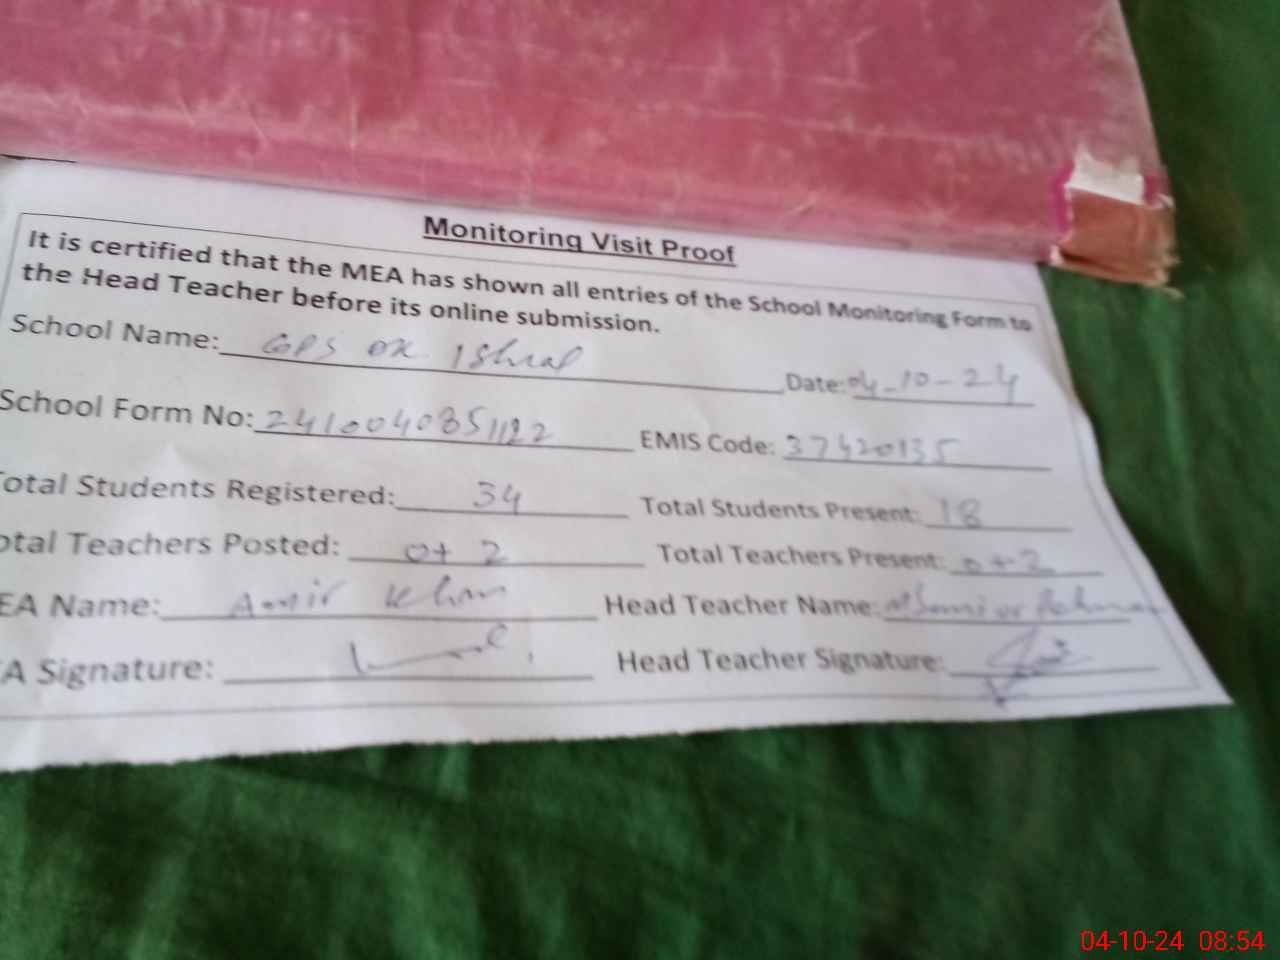 Monitoring Visit Proof
It is certified that the MEA has shown all entries of the School Monitoring Form to
the Head Teacher before its online submission.
School Name: GPS DK. Ishraf Date: 04-10-24
School Form No: 2410040851122 EMIS Code: 37420135
otal Students Registered: 34 Total Students Present: 18
otal Teachers Posted: 0+2 Total Teachers Present: 0+2
EA Name: Amir Khan Head Teacher Name:
A Signature: Head Teacher Signature:
04-10-24 08:54